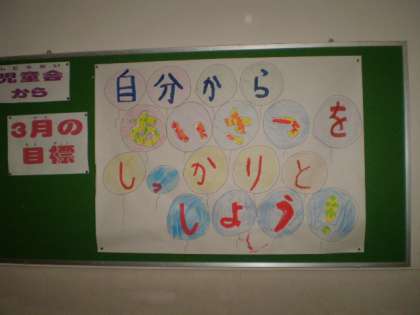 児童会
から
3月の
目標
自分から
あいさつを
しっかりと
しよう!